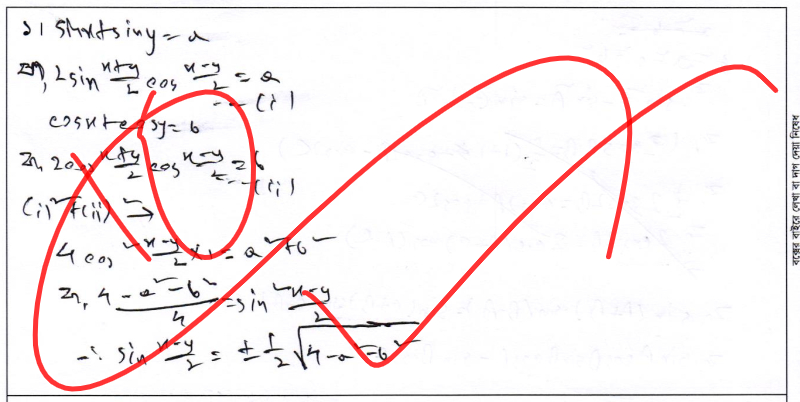 ১। sinx+siny = a
বা, 2sin x+y/2 cos x-y/2 = a
---(i)
cosx+cosy=b
বা, 2cos x+y/2 cos x-y/2 = b
---(ii)
(i)²+(ii)² →
4cos² x-y/2 ×1 = a²+b²
বা, 4-a²-b²/4 = sin² x-y/2
∴ sin x-y/2 = ± 1/2 √4-a²-b²
বক্সের বাইরে লেখা বা দাগ দেয়া নিষেধ